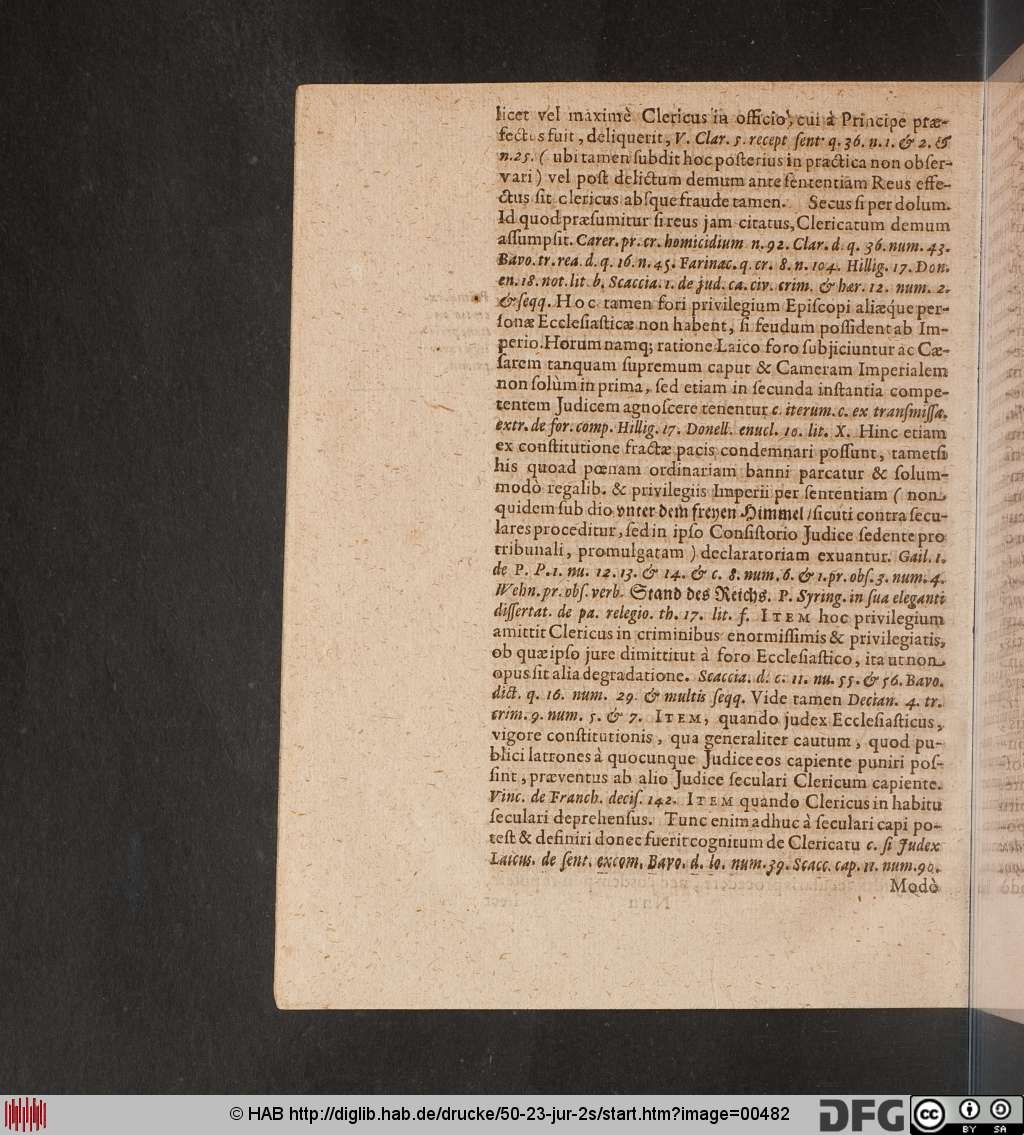 licet vel maximè Clericus in officio, cui à Principe præ-
fectus fuit, deliquerit, V. Clar. 5. recept sent. q. 36. n. 1. & 2. &
n. 25. ( ubi tamen subdit hoc posterius in practica non obser-
vari ) vel post delictum demum ante sententiam Reus effe-
ctus sit clericus absque fraude tamen. Secus si per dolum.
Id quod præsumitur si reus jam citatus, Clericatum demum
assumpsit. Carer. pr. cr. homicidium n. 92. Clar. d. q. 36. num. 43.
Bavo. tr. rea. d. q. 16. n. 45. Farinac. q. cr. 8. n. 104. Hillig. 17. Don.
en. 18. not. lit. b. Scaccia. 1. de jud. ca. civ. crim. & hær. 12. num. 2.
& seqq. Hoc tamen fori privilegium Episcopi aliæque per-
sonæ Ecclesiasticæ non habent, si feudum possident ab Im-
perio. Horum namq; ratione Laico foro subjiciuntur ac Cæ-
sarem tanquam supremum caput & Cameram Imperialem
non solùm in prima, sed etiam in secunda instantia compe-
tentem Judicem agnoscere tenentur c. iterum. c. ex transmissa.
extr. de for. comp. Hillig. 17. Donell. enucl. 10. lit. X. Hinc etiam
ex constitutione fractæ pacis condemnari possunt, tametsi
his quoad pœnam ordinariam banni parcatur & solum-
modò regalib. & privilegiis Imperii per sententiam ( non
quidem sub dio vnter dem freyen Himmel / sicuti contra secu-
lares proceditur, sed in ipso Consistorio Judice sedente pro
tribunali, promulgatam ) declaratoriam exuantur. Gail. 1.
de P. P. 1. nu. 12. 13. & 14. & c. 8. num. 6. & 1. pr. obs. 3. num. 4.
Wehn. pr. obs. verb. Stand des Reichs. P. Syring. in sua eleganti
dissertat. de pa. relegio. th. 17. lit. f. ITEM hoc privilegium
amittit Clericus in criminibus enormissimis & privilegiatis,
ob quæ ipso jure dimittitut à foro Ecclesiastico, ita ut non
opus sit alia degradatione. Scaccia. d. c. 11. nu. 55. & 56. Bavo.
dict. q. 16. num. 29. & multis seqq. Vide tamen Decian. 4. tr.
crim. 9. num. 5. & 7. ITEM, quando judex Ecclesiasticus,
vigore constitutionis, qua generaliter cautum, quod pu-
blici latrones à quocunque Judice eos capiente puniri pos-
sint, præventus ab alio Judice seculari Clericum capiente.
Vinc. de Franch. decis. 142. ITEM quando Clericus in habitu
seculari deprehensus. Tunc enim adhuc à seculari capi po-
test & definiri donec fuerit cognitum de Clericatu c. si Judex
Laicus. de sent. excom. Bavo. d. lo. num. 39. Scacc. cap. 11. num. 90.
Modò
© HAB http://diglib.hab.de/drucke/50-23-jur-2s/start.htm?image=00482
DFG
cc
BY SA